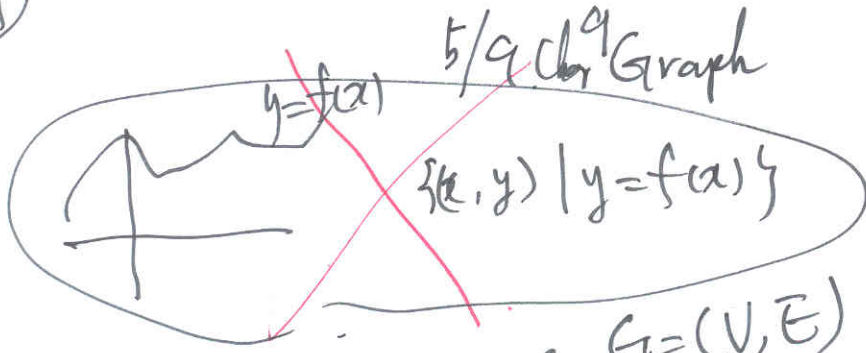 5/9 Ch 9 Graph
y=f(x)
{(x,y) | y=f(x)}
G=(V,E)